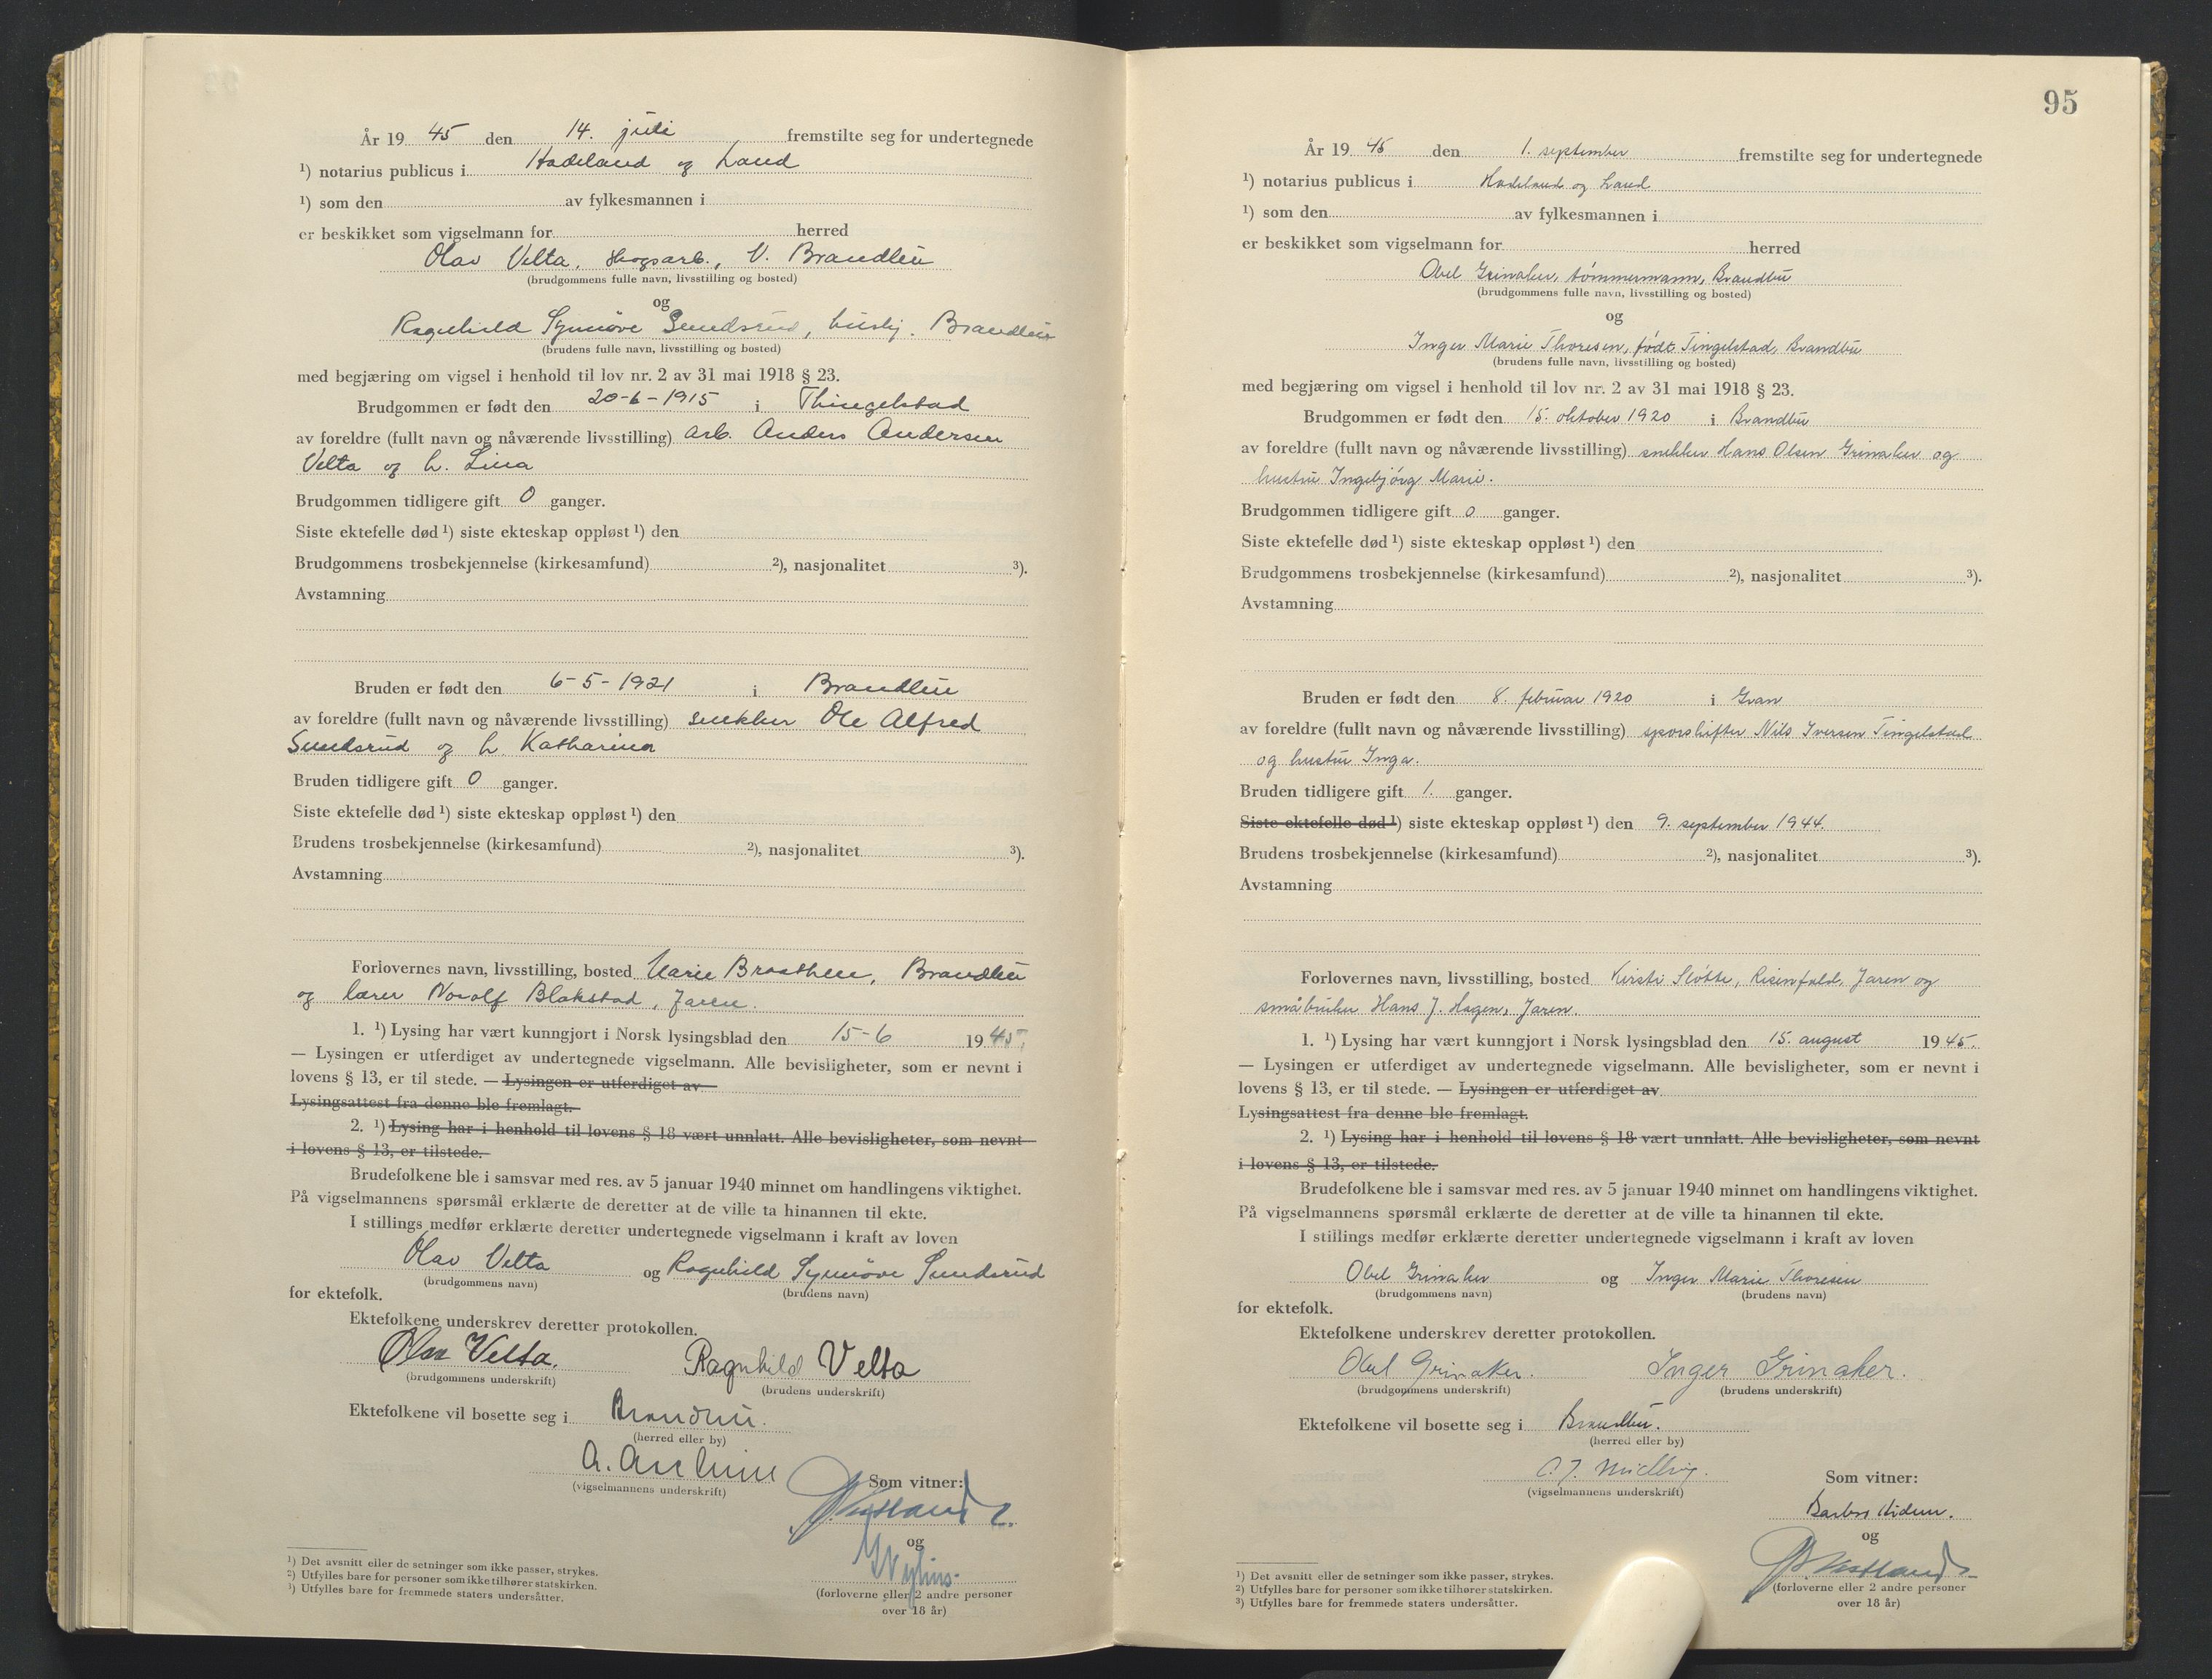 År 19 45 den 14. juli fremstilte seg for undertegnede
¹) notarius publicus i Hadeland og Land
¹) som den av fylkesmannen i
er beskikket som vigselmann for herred
Olav Velta, skogsarb., V. Brandbu
(brudgommens fulle navn, livsstilling og bosted)
og
Ragnhild Synnøve Sundsrud, hushj. Brandbu
(brudens fulle navn, livsstilling og bosted)
med begjæring om vigsel i henhold til lov nr. 2 av 31 mai 1918 § 23.
Brudgommen er født den 20-6-1915 i Thingelstad
av foreldre (fullt navn og nåværende livsstilling) arb. Anders Andersen
Velta og h. Lina
Brudgommen tidligere gift 0 ganger.
Siste ektefelle død ¹) siste ekteskap oppløst ¹) den
Brudgommens trosbekjennelse (kirkesamfund) ²), nasjonalitet ³).
Avstamning
Bruden er født den 6-5-1921 i Brandbu
av foreldre (fullt navn og nåværende livsstilling) snekker Ole Alfred
Sundsrud og h. Katharina
Bruden tidligere gift 0 ganger.
Siste ektefelle død ¹) siste ekteskap oppløst ¹) den
Brudens trosbekjennelse (kirkesamfund) ²), nasjonalitet ³).
Avstamning
Forlovernes navn, livsstilling, bosted Marie Braathen, Brandbu
og lærer Norolf Blakstad, Jaren.
1. ¹) Lysing har vært kunngjort i Norsk lysingsblad den 15-6 1945.
— Lysingen er utferdiget av undertegnede vigselmann. Alle bevisligheter, som er nevnt i
lovens § 13, er til stede. — Lysingen er utferdiget av
Lysingsattest fra denne ble fremlagt.
2. ¹) Lysing har i henhold til lovens § 18 vært unnlatt. Alle bevisligheter, som nevnt
i lovens § 13, er tilstede.
Brudefolkene ble i samsvar med res. av 5 januar 1940 minnet om handlingens viktighet.
På vigselmannens spørsmål erklærte de deretter at de ville ta hinannen til ekte.
I stillings medfør erklærte deretter undertegnede vigselmann i kraft av loven
Olav Velta og Ragnhild Synnøve Sundsrud
(brudgommens navn) (brudens navn)
for ektefolk.
Ektefolkene underskrev deretter protokollen.
Olav Velta. Ragnhild Velta
(brudgommens underskrift) (brudens underskrift)
Ektefolkene vil bosette seg i Brandbu.
(herred eller by)
(vigselmannens underskrift)
Som vitner:
og
(forloverne eller 2 andre personer
over 18 år)
¹) Det avsnitt eller de setninger som ikke passer, strykes.
²) Utfylles bare for personer som ikke tilhører statskirken.
³) Utfylles bare for fremmede staters undersåtter.
95
År 19 45 den 1. september fremstilte seg for undertegnede
¹) notarius publicus i Hadeland og Land
¹) som den av fylkesmannen i
er beskikket som vigselmann for herred
Obel Grinaker, tømmermann, Brandbu
(brudgommens fulle navn, livsstilling og bosted)
og
Inger Marie Thoresen, født Tingelstad, Brandbu
(brudens fulle navn, livsstilling og bosted)
med begjæring om vigsel i henhold til lov nr. 2 av 31 mai 1918 § 23.
Brudgommen er født den 15. oktober 1920 i Brandbu
av foreldre (fullt navn og nåværende livsstilling) snekker Hans Olsen Grinaker og
hustru Ingebjørg Marie.
Brudgommen tidligere gift 0 ganger.
Siste ektefelle død ¹) siste ekteskap oppløst ¹) den
Brudgommens trosbekjennelse (kirkesamfund) ²), nasjonalitet ³).
Avstamning
Bruden er født den 8. februar 1920 i Gran
av foreldre (fullt navn og nåværende livsstilling) sporskifter Nils Iversen Tingelstad
og hustru Inga.
Bruden tidligere gift 1. ganger.
Siste ektefelle død ¹) siste ekteskap oppløst ¹) den 9. september 1944.
Brudens trosbekjennelse (kirkesamfund) ²), nasjonalitet ³).
Avstamning
Forlovernes navn, livsstilling, bosted Kirsti Sløtte, Risenfald, Jaren og
småbruker Hans J. Hagen, Jaren.
1. ¹) Lysing har vært kunngjort i Norsk lysingsblad den 15. august 1945.
— Lysingen er utferdiget av undertegnede vigselmann. Alle bevisligheter, som er nevnt i
lovens § 13, er til stede. — Lysingen er utferdiget av
Lysingsattest fra denne ble fremlagt.
2. ¹) Lysing har i henhold til lovens § 18 vært unnlatt. Alle bevisligheter, som nevnt
i lovens § 13, er tilstede.
Brudefolkene ble i samsvar med res. av 5 januar 1940 minnet om handlingens viktighet.
På vigselmannens spørsmål erklærte de deretter at de ville ta hinannen til ekte.
I stillings medfør erklærte deretter undertegnede vigselmann i kraft av loven
Obel Grinaker og Inger Marie Thoresen
(brudgommens navn) (brudens navn)
for ektefolk.
Ektefolkene underskrev deretter protokollen.
Obel Grinaker. Inger Grinaker.
(brudgommens underskrift) (brudens underskrift)
Ektefolkene vil bosette seg i Brandbu.
(herred eller by)
(vigselmannens underskrift)
Som vitner:
og
(forloverne eller 2 andre personer
over 18 år)
¹) Det avsnitt eller de setninger som ikke passer, strykes.
²) Utfylles bare for personer som ikke tilhører statskirken.
³) Utfylles bare for fremmede staters undersåtter.